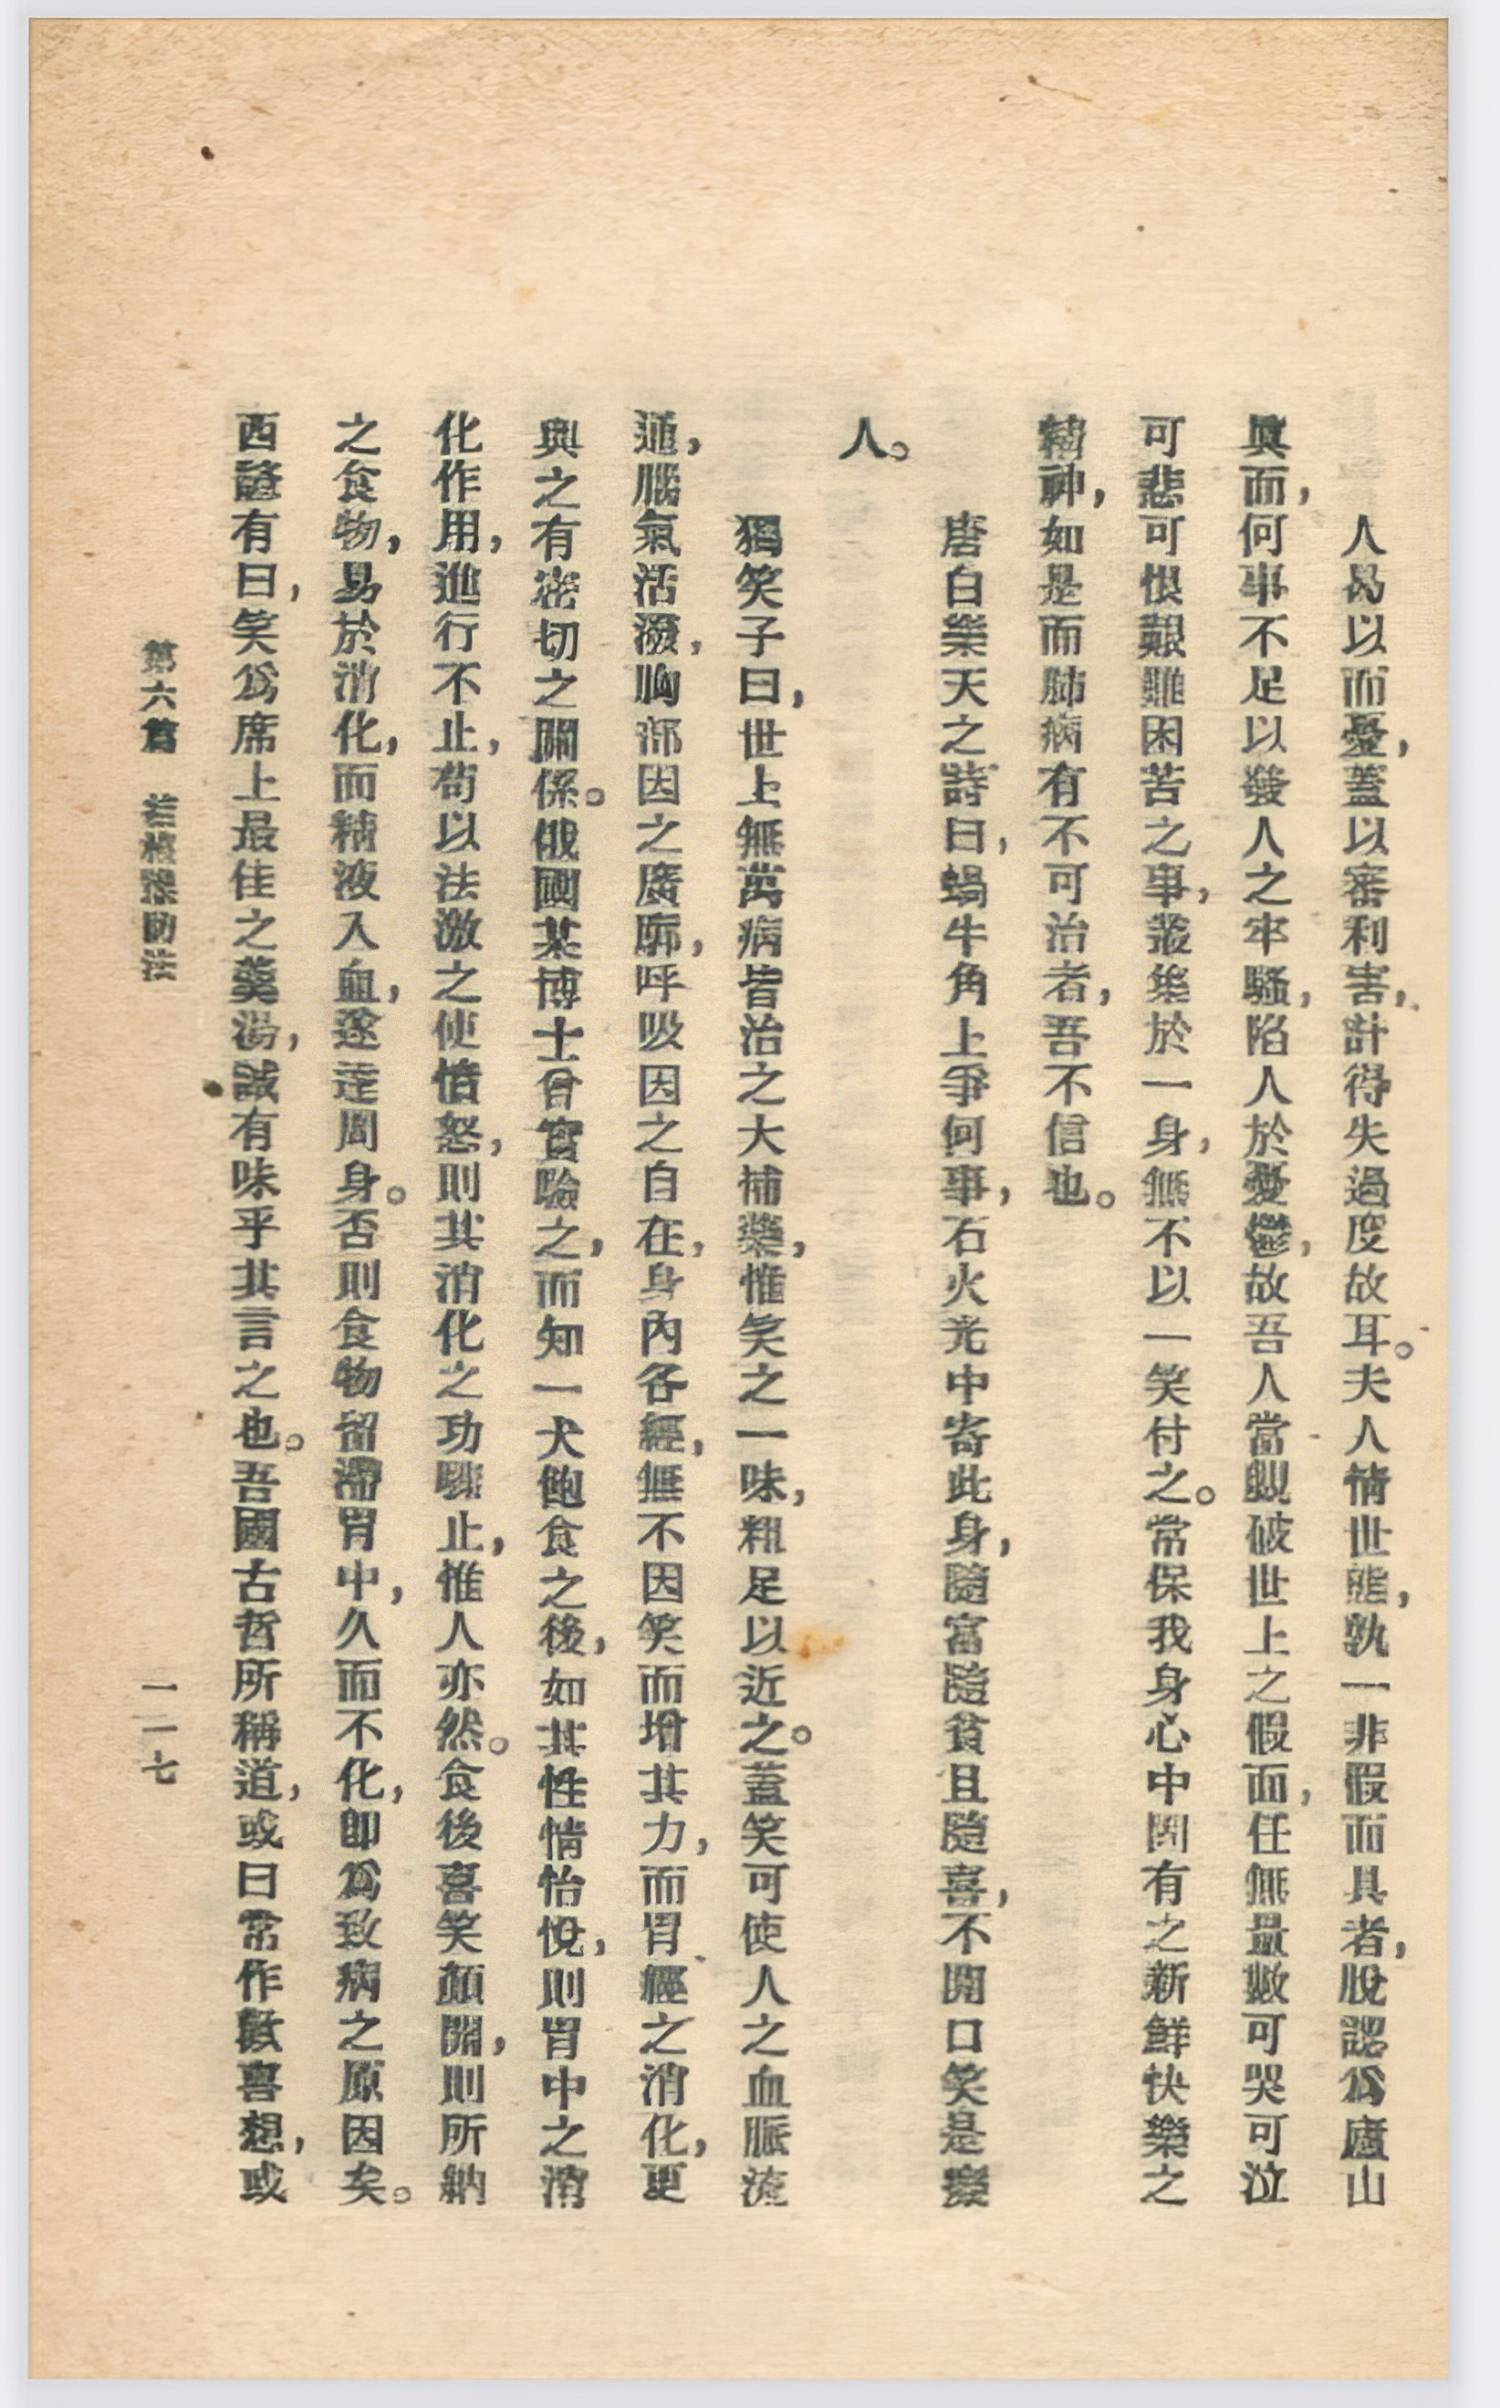 人曷以而憂，蓋以審利害，計得失過度故耳。夫人情世態，孰一非假而具者，脫認為廬山
眞而，何事不足以發人之牢騷，陷人於憂鬱，故吾人當覷破世上之假面，任無量數可哭可泣
可悲可恨艱難困苦之事，叢集於一身，無不以一笑付之。常保我身心中固有之新鮮快樂之
精神，如是而肺病有不可治者，吾不信也。
唐白樂天之詩曰，蝸牛角上爭何事，石火光中寄此身，隨富隨貧且隨喜，不開口笑是癡
人。
獨笑子曰，世上無萬病皆治之大補藥，惟笑之一味，粗足以近之。蓋笑可使人之血脈流
通，腦氣活潑，胸部因之廣廓，呼吸因之自在，身內各經，無不因笑而增其力，而胃經之消化，更
與之有密切之關係。俄國某博士曾實驗之，而知一犬飽食之後，如其性情怡悅，則胃中之消
化作用，進行不止，苟以法激之使憤怒，則其消化之功驟止，惟人亦然。食後喜笑顏開，則所納
之食物，易於消化，而精液入血，遂達周身。否則食物留滯胃中，久而不化，卽為致病之原因矣。
西諺有曰，笑為席上最佳之羹湯，誠有味乎其言之也。吾國古哲所稱道，或曰常作歡喜想，或
第六篇　若核操助法
一一七